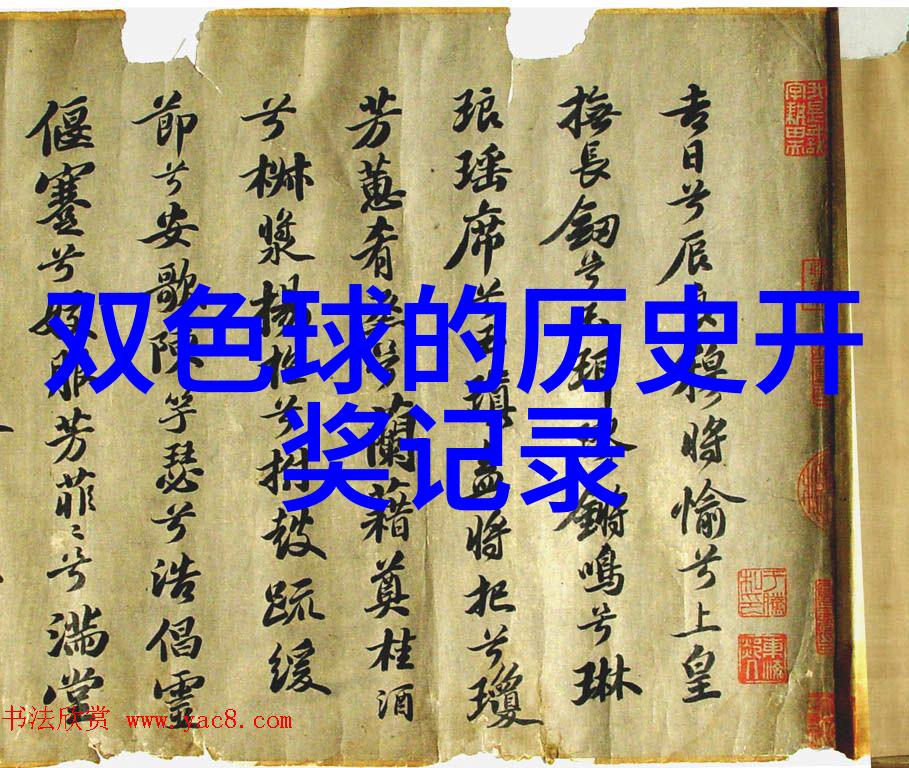 双色球的历史开
奖记录
吉日兮辰良穆將愉兮上皇
撫長劒兮玉珥鏘鳴兮琳
琅瑶席兮玉瑱盍將把兮瓊
芳蕙肴蒸兮蘭藉奠桂酒
兮椒漿揚枹兮拊鼓疏緩
節兮安歌陳竽瑟兮浩倡靈
偃蹇兮姣服芳菲〻兮滿堂
书法欣赏 www.yac8.com